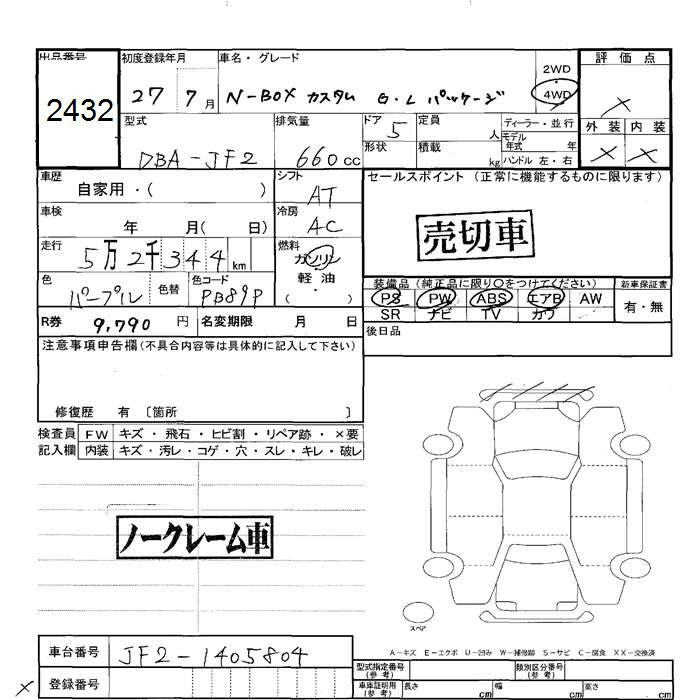 出品番号 初度登録年月 車名・グレード 評価点
2432 27 7月 N-BOX カスタム G・L パッケージ 2WD 4WD ×
型式 排気量 ドア 定員 ディーラー・並行 外装 内装
DBA-JF2 660cc 5 人 モデル年式 年 × ×
形状 積載 kg ハンドル 左・右
車歴 シフト セールスポイント(正常に機能するものに限ります)
自家用・( ) AT
車検 冷房 売切車
年 月( 日) AC
走行 燃料
5万2千344km ガソリン
軽油
( )
色 色替 色コード
パープル PB89P
装備品(純正品に限り○をつけてください) 新車保証書
PS PW ABS エアB AW 有・無
SR ナビ TV カワ
R券 9,790円 名変期限 月 日
後日品
注意事項申告欄(不具合内容等は具体的に記入して下さい)
修復歴 有 〔箇所 〕
検査員 FW キズ・飛石・ヒビ割・リペア跡・×要
記入欄 内装 キズ・汚レ・コゲ・穴・スレ・キレ・破レ
ノークレーム車
スペア
A-キズ E-エクボ U-凹み W-補修跡 S-サビ C-腐食 XX-交換済
車台番号 JF2-1405804
型式指定番号(参考) 類別区分番号(参考)
× 登録番号
車庫証明用(参考) 長さ cm 幅 cm 高さ cm